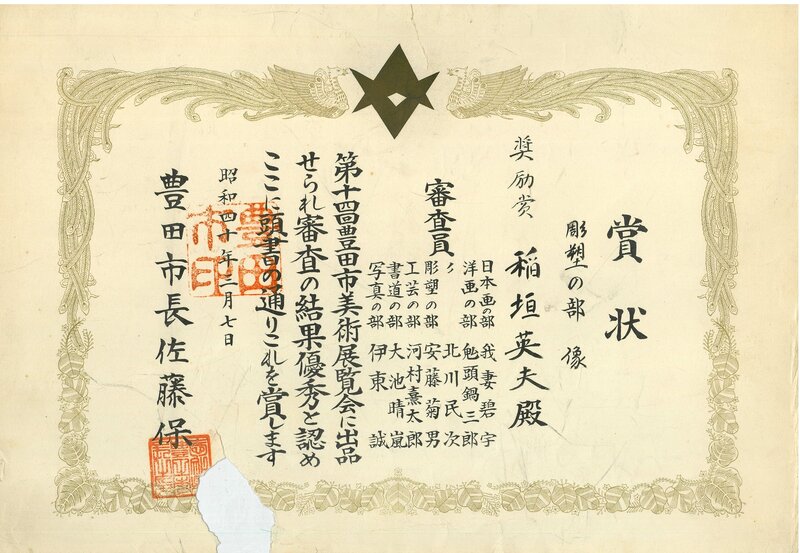 賞状
彫塑の部 像
奨励賞 稲垣英夫殿
審査員
日本画の部 我妻碧宇
洋画の部 鬼頭鍋三郎
〃 北川民次
彫塑の部 安藤菊男
工芸の部 河村熹太郎
書道の部 大池晴嵐
写真の部 伊東誠
第十四回豊田市美術展覧会に出品
せられ審査の結果優秀と認め
ここに頭書の通りこれを賞します
昭和四十年三月七日
豊田市長佐藤保
豊田
市印